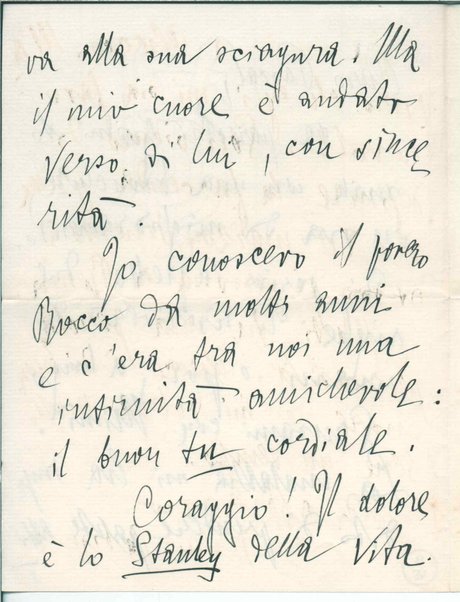 va alla sua sciagura. Ma
il mio cuore è andato
verso di lui, con since
rità
Io conoscevo il povero
Rocco da molti anni
e c'era tra noi una
intimità amichevole:
il buon tu cordiale.
Coraggio! Il dolore
è lo Stanley della vita.